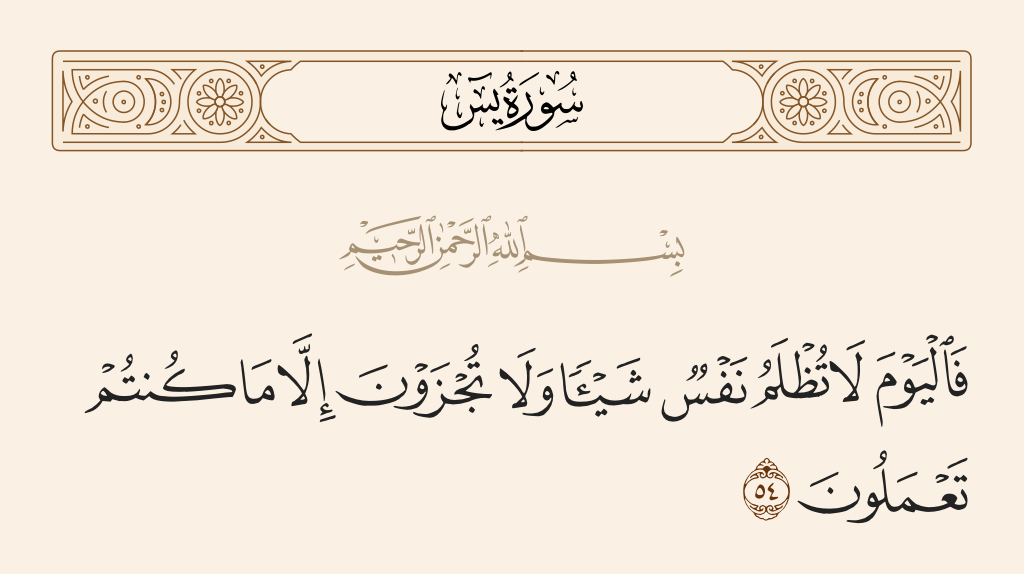 سُورَةُ يسٓ
بِسْمِ ٱللَّهِ ٱلرَّحْمَٰنِ ٱلرَّحِيمِ
فَٱلْيَوْمَ لَا تُظْلَمُ نَفْسٌ شَيْـًٔا وَلَا تُجْزَوْنَ إِلَّا مَا كُنتُمْ
تَعْمَلُونَ ٥٤